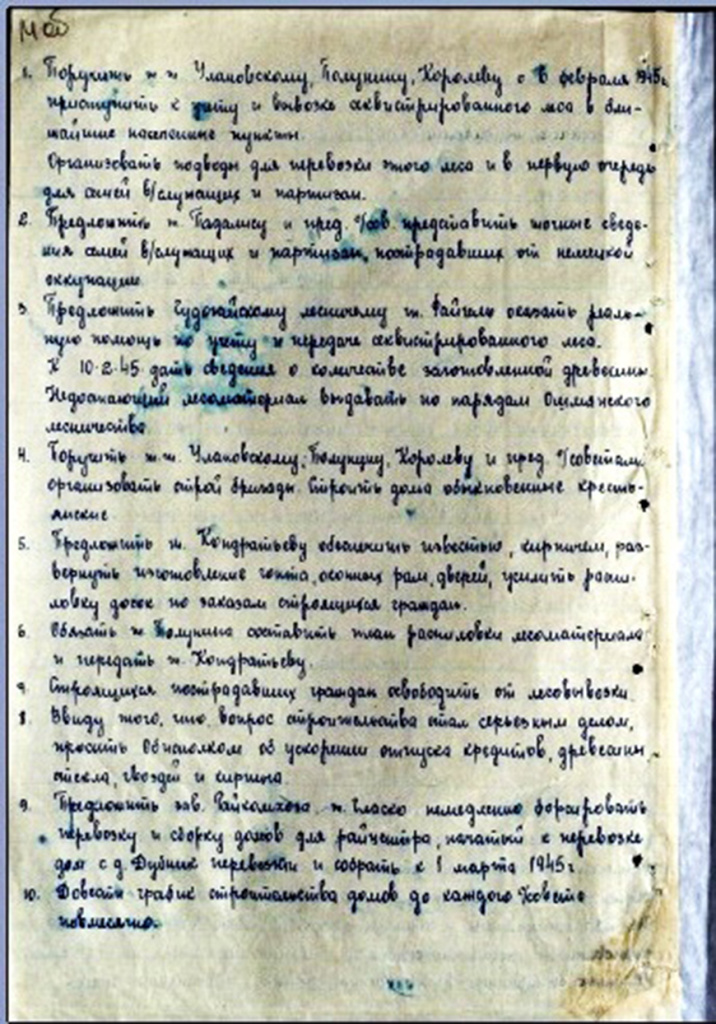 Моб
1. Поручить т.т. Улановскому, Полунину, Королеву с 6 февраля 1945г.
приступить к учету и вывозке секвистрированного леса в бли-
жайшие населенные пункты.
Организовать подводы для перевозки этого леса и в первую очередь
для семей в/служащих и партизан.
2. Предложить т. Падалису и пред. с/сов. представить точные сведе-
ния семей в/служащих и партизан, пострадавших от немецкой
оккупации
3. Предложить Гудогайскому лесничему т. оказать реаль-
ную помощь по учету и передаче секвистрированного леса.
К 10.2.45 дать сведения о количестве заготовленной древесины.
Недостающий лесоматериал выдавать по нарядам Ошмянского
лесничества.
4. Поручить т.т. Улановскому, Полунину, Королеву и пред. с/советам
организовать строй бригады. Строить дома обыкновенные кресть-
янские
5. Предложить т. Кондратьеву обеспечить известью, кирпичем, раз-
вернуть изготовление гонта, оконных рам, дверей, усилить распи-
ловку досок по заказам строящихся граждан.
6. Обязать т. Полунина составить план распиловки лесоматериала
и передать т. Кондратьеву
7. Строящихся пострадавших граждан освободить от лесовывозки
8. Ввиду того, что вопрос строительства стал серьезным делом,
просить Облисполком об ускорении отпуска кредитов, древесины,
стекла, гвоздей и кирпича.
9. Предложить зав. Райкомхоза т. Гласко немедленно форсировать
перевозку и сборку домов для райцентра, начатый к перевозке
дом с д. Дубник перевезти и собрать к 1 марта 1945г
10. Довести график строительства домов до каждого с/совета
помесячно.